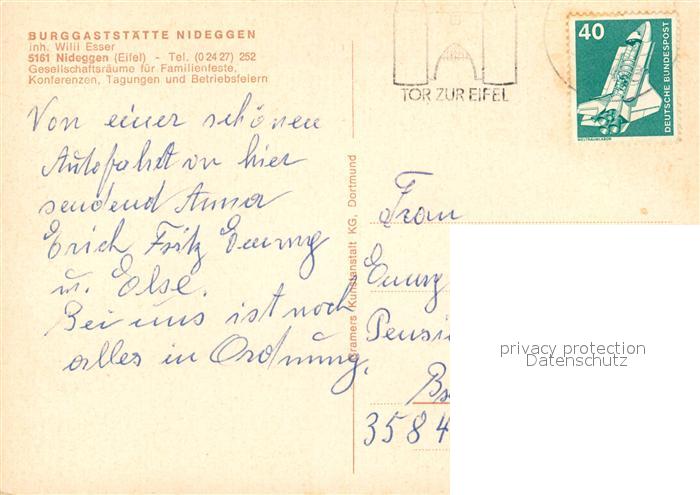 BURGGASTSTÄTTE NIDEGGEN
inh. Willi Esser
5161 Nideggen (Eifel) - Tel. (0 24 27) 252
Gesellschaftsräume für Familienfeste,
Konferenzen, Tagungen und Betriebsfeiern
TOR ZUR EIFEL
40
DEUTSCHE BUNDESPOST
WELTRAUMLABOR
Von einer schönen
Autofahrt von hier
sendend Anna
Erich Fritz Emmy
u. Else.
Bei uns ist noch
alles in Ordnung.
Cramers Kunstanstalt KG, Dortmund
Frau
Emmy
Pensi
3584
privacy protection
Datenschutz